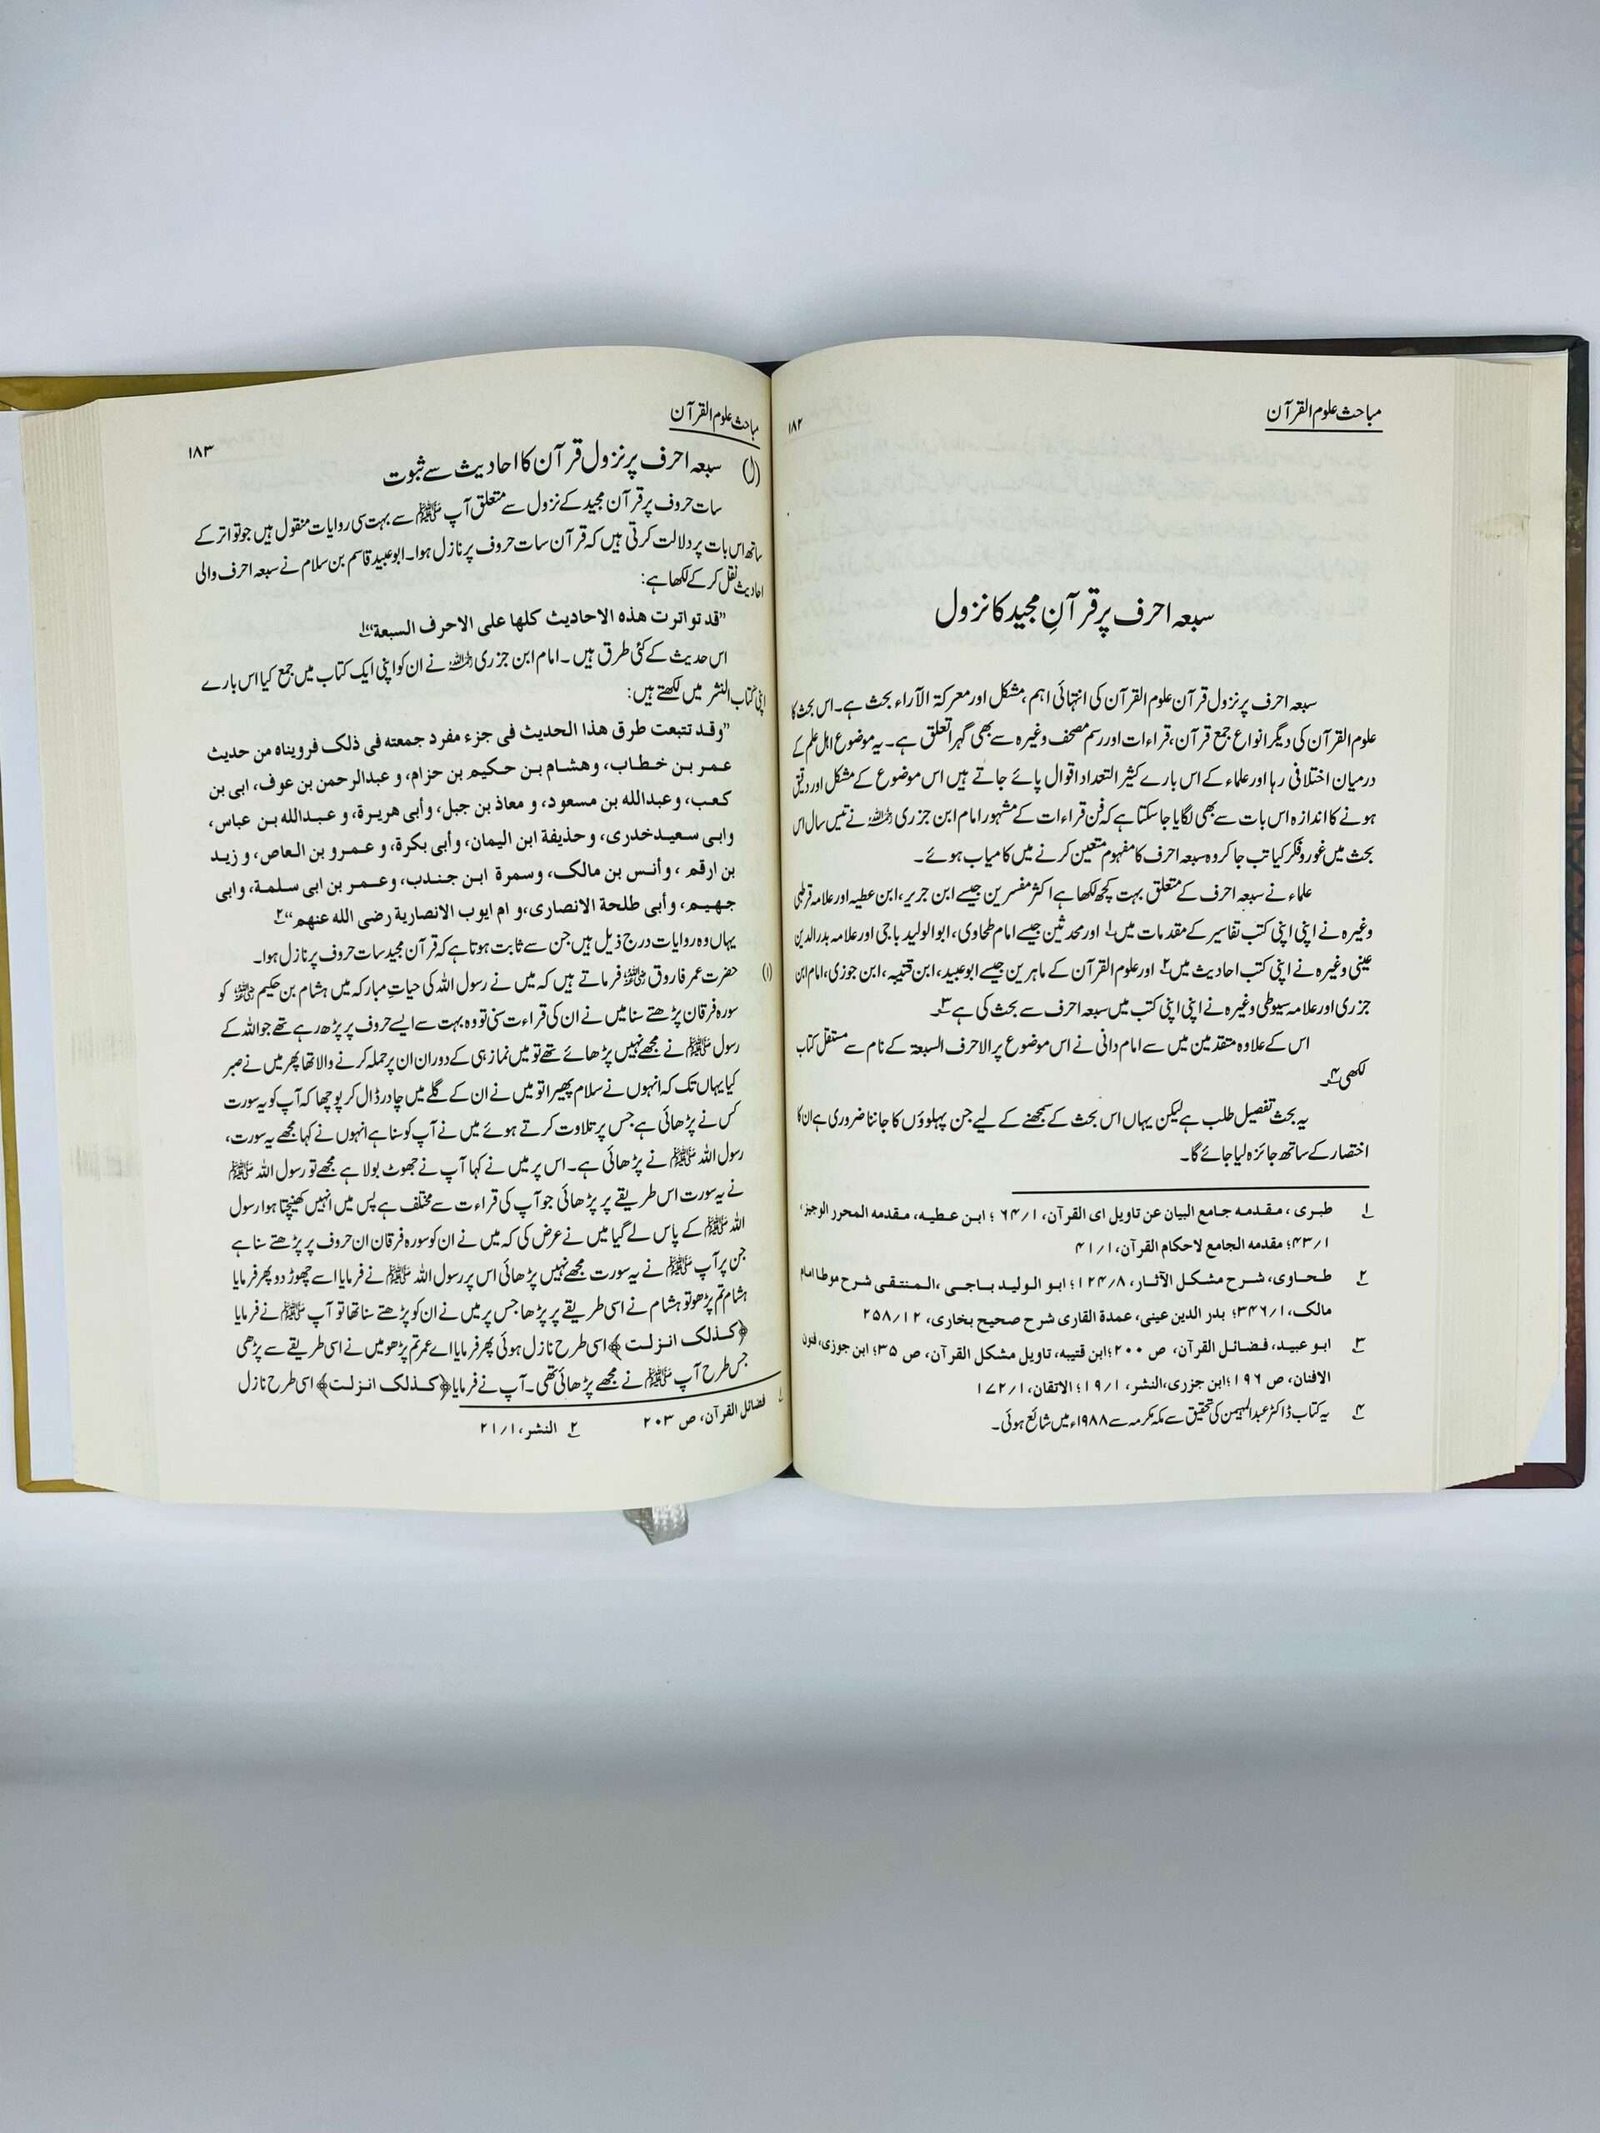 مباحث علوم القرآن
۱۸۲
سبعہ احرف پر قرآنِ مجید کا نزول
سبعہ احرف پر نزول قرآن علوم القرآن کی انتہائی اہم، مشکل اور معرکۃ الآراء بحث ہے۔ اس بحث کا
علوم القرآن کی دیگر انواع جمع قرآن، قراءات اور رسم مصحف وغیرہ سے بھی گہرا تعلق ہے۔ یہ موضوع اہل علم کے
درمیان اختلافی رہا اور علماء کے اس بارے کثیر التعداد اقوال پائے جاتے ہیں اس موضوع کے مشکل اور دقیق
ہونے کا اندازہ اس بات سے بھی لگایا جا سکتا ہے کہ فن قراءات کے مشہور امام ابن جزری رحمہ اللہ نے تیس سال اس
بحث میں غور و فکر کیا تب جا کر وہ سبعہ احرف کا مفہوم متعین کرنے میں کامیاب ہوئے۔
علماء نے سبعہ احرف کے متعلق بہت کچھ لکھا ہے اکثر مفسرین جیسے ابن جریر، ابن عطیہ اور علامہ قرطبی
وغیرہ نے اپنی اپنی کتب تفاسیر کے مقدمات میں۱ اور محدثین جیسے امام طحاوی، ابوالولید باجی اور علامہ بدرالدین
عینی وغیرہ نے اپنی کتب احادیث میں۲ اور علوم القرآن کے ماہرین جیسے ابوعبید، ابن قتیبہ، ابن جوزی، امام ابن
جزری اور علامہ سیوطی وغیرہ نے اپنی اپنی کتب میں سبعہ احرف سے بحث کی ہے۳۔
اس کے علاوہ متقدمین میں سے امام دانی نے اس موضوع پر الاحرف السبعۃ کے نام سے مستقل کتاب
لکھی۴۔
یہ بحث تفصیل طلب ہے لیکن یہاں اس بحث کے سمجھنے کے لیے جن پہلوؤں کا جاننا ضروری ہے ان کا
اختصار کے ساتھ جائزہ لیا جائے گا۔
۱ طبری، مقدمہ جامع البیان عن تاویل ای القرآن، ۶۴/۱ ؛ ابن عطیہ، مقدمہ المحرر الوجیز،
۴۳/۱؛ مقدمہ الجامع لاحکام القرآن، ۴۱/۱
۲ طحاوی، شرح مشکل الآثار، ۱۲۴/۸؛ ابو الولید باجی، المنتقی شرح موطا امام
مالک، ۳۴۶/۱؛ بدر الدین عینی، عمدۃ القاری شرح صحیح بخاری، ۲۵۸/۱۲
۳ ابو عبید، فضائل القرآن، ص ۲۰۰؛ ابن قتیبہ، تاویل مشکل القرآن، ص ۳۵؛ ابن جوزی، فنون
الافنان، ص ۱۹۶؛ ابن جزری، النشر، ۱۹/۱؛ الاتقان، ۱۷۲/۱
۴ یہ کتاب ڈاکٹر عبدالمہیمن کی تحقیق سے مکہ مکرمہ سے ۱۹۸۸ء میں شائع ہوئی۔
مباحث علوم القرآن
۱۸۳
(ا) سبعہ احرف پر نزول قرآن کا احادیث سے ثبوت
سات حروف پر قرآن مجید کے نزول سے متعلق آپ ﷺ سے بہت سی روایات منقول ہیں جو تواتر کے
ساتھ اس بات پر دلالت کرتی ہیں کہ قرآن سات حروف پر نازل ہوا۔ ابوعبید قاسم بن سلام نے سبعہ احرف والی
احادیث نقل کر کے لکھا ہے:
”قد تواترت ھذہ الاحادیث کلھا علی الاحرف السبعة“۱
اس حدیث کے کئی طرق ہیں۔ امام ابن جزری رحمہ اللہ نے ان کو اپنی ایک کتاب میں جمع کیا اس بارے
اپنی کتاب النشر میں لکھتے ہیں:
”وقد تتبعت طرق ھذا الحدیث فی جزء مفرد جمعته فی ذلک فرویناہ من حدیث
عمر بن خطاب، وھشام بن حکیم بن حزام، و عبدالرحمن بن عوف، ابی بن
کعب، وعبدالله بن مسعود، و معاذ بن جبل، وأبی ھریرة، و عبدالله بن عباس،
وابی سعیدخدری، وحذیفة ابن الیمان، وأبی بکرة، و عمرو بن العاص، و زید
بن ارقم، وأنس بن مالک، وسمرة ابن جندب، وعمر بن ابی سلمة، وابی
جھیم، وأبی طلحة الانصاری، و ام ایوب الانصاریة رضی الله عنھم“۲
یہاں وہ روایات درج ذیل ہیں جن سے ثابت ہوتا ہے کہ قرآن مجید سات حروف پر نازل ہوا۔
(۱) حضرت عمر فاروق رضی اللہ عنہ فرماتے ہیں کہ میں نے رسول اللہ کی حیاتِ مبارکہ میں ہشام بن حکیم رضی اللہ عنہ کو
سورہ فرقان پڑھتے سنا میں نے ان کی قراءت سنی تو وہ بہت سے ایسے حروف پر پڑھ رہے تھے جو اللہ کے
رسول ﷺ نے مجھے نہیں پڑھائے تھے تو میں نماز ہی کے دوران ان پر حملہ کرنے والا تھا پھر میں نے صبر
کیا یہاں تک کہ انہوں نے سلام پھیرا تو میں نے ان کے گلے میں چادر ڈال کر پوچھا کہ آپ کو یہ سورت
کس نے پڑھائی ہے جس پر تلاوت کرتے ہوئے میں نے آپ کو سنا ہے انہوں نے کہا مجھے یہ سورت،
رسول اللہ ﷺ نے پڑھائی ہے۔ اس پر میں نے کہا آپ نے جھوٹ بولا ہے مجھے تو رسول اللہ ﷺ
نے یہ سورت اس طریقے پر پڑھائی جو آپ کی قراءت سے مختلف ہے پس میں انہیں کھینچتا ہوا رسول
اللہ ﷺ کے پاس لے گیا میں نے عرض کی کہ میں نے ان کو سورہ فرقان ان حروف پر پڑھتے سنا ہے
جن پر آپ ﷺ نے یہ سورت مجھے نہیں پڑھائی اس پر رسول اللہ ﷺ نے فرمایا اسے چھوڑ دو پھر فرمایا
ہشام تم پڑھو تو ہشام نے اسی طریقے پر پڑھا جس پر میں نے ان کو پڑھتے سنا تھا تو آپ ﷺ نے فرمایا
﴿کذلک انزلت﴾ اسی طرح نازل ہوئی پھر فرمایا اے عمر تم پڑھو میں نے اسی طریقے سے پڑھی
جس طرح آپ ﷺ نے مجھے پڑھائی تھی۔ آپ نے فرمایا ﴿کذلک انزلت﴾ اسی طرح نازل
۱ فضائل القرآن، ص ۲۰۳ ۲ النشر، ۲۱/۱